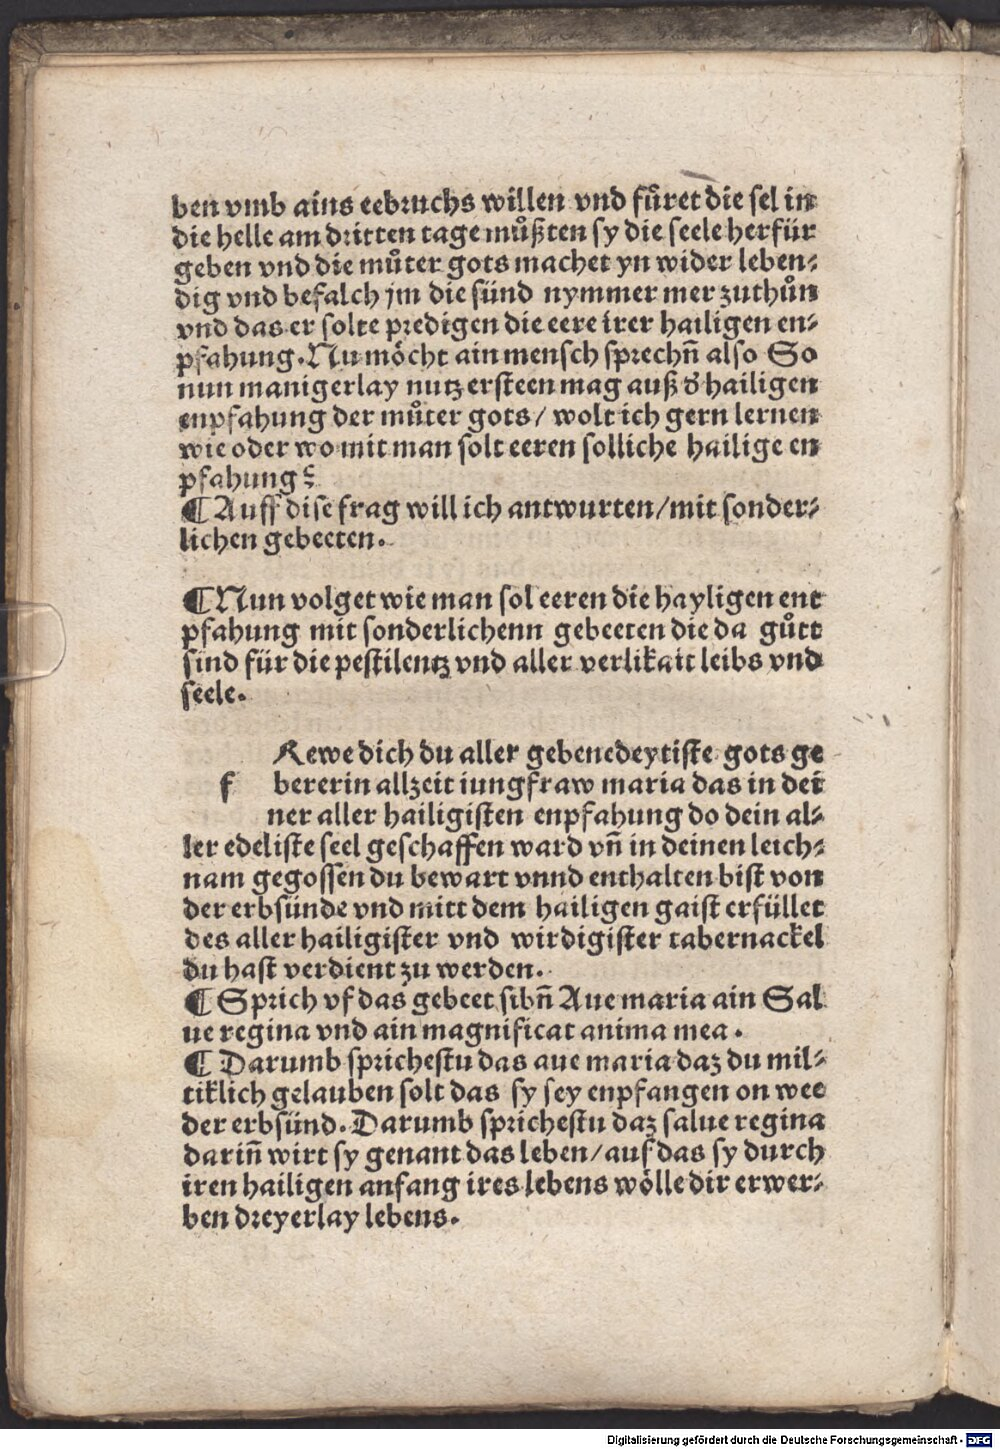 ben vmb ains eebruchs willen vnd fuͦret die sel in
die helle am dritten tage muͦßten sy die seele herfür
geben vnd die muͦter gots machet yn wider leben⸗
dig vnd befalch jm die sünd nymmer mer zuthuͦn
vnd das er solte predigen die eere irer hailigen en⸗
pfahung. Nu möcht ain mensch sprechn̄ also So
nun manigerlay nutz ersteen mag auß d' hailigen
enpfahung der muͦter gots / wolt ich gern lernen
wie oder wo mit man solt eeren solliche hailige en
pfahung?
¶ Auff dise frag will ich antwurten / mit sonder⸗
lichen gebeeten.
¶ Nun volget wie man sol eeren die hayligen ent
pfahung mit sonderlichenn gebeeten die da guͦtt
sind für die pestilentz vnd aller verlikait leibs vnd
seele.
Rewe dich du aller gebenedeytiste gots ge
f bererin allzeit iungfraw maria das in dei
ner aller hailigisten enpfahung do dein al⸗
ler edeliste seel geschaffen ward vn̄ in deinen leich⸗
nam gegossen du bewart vnnd enthalten bist von
der erbsünde vnd mitt dem hailigen gaist erfüllet
des aller hailigister vnd wirdigister tabernackel
du hast verdient zu werden.
¶ Sprich vf das gebeet sibn̄ Aue maria ain Sal
ue regina vnd ain magnificat anima mea.
¶ Darumb sprichestu das aue maria daz du mil⸗
tiklich gelauben solt das sy sey enpfangen on wee
der erbsünd. Darumb sprichestu daz salue regina
darin̄ wirt sy genant das leben / auf das sy durch
iren hailigen anfang ires lebens wölle dir erwer⸗
ben dreyerlay lebens.
Digitalisierung gefördert durch die Deutsche Forschungsgemeinschaft - DFG